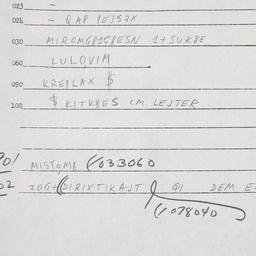 023 –
024 – QAP PEJSAX
030 MIROMGP1GPESN 1+SUK8E
060 LULQVIM
090 KREPLAX $
100 $ KITK8ES CM LEJTER
901 MISTOME (/033060
02 ZOG+(DIRIXTIKAJT QI DEM E
(/078040